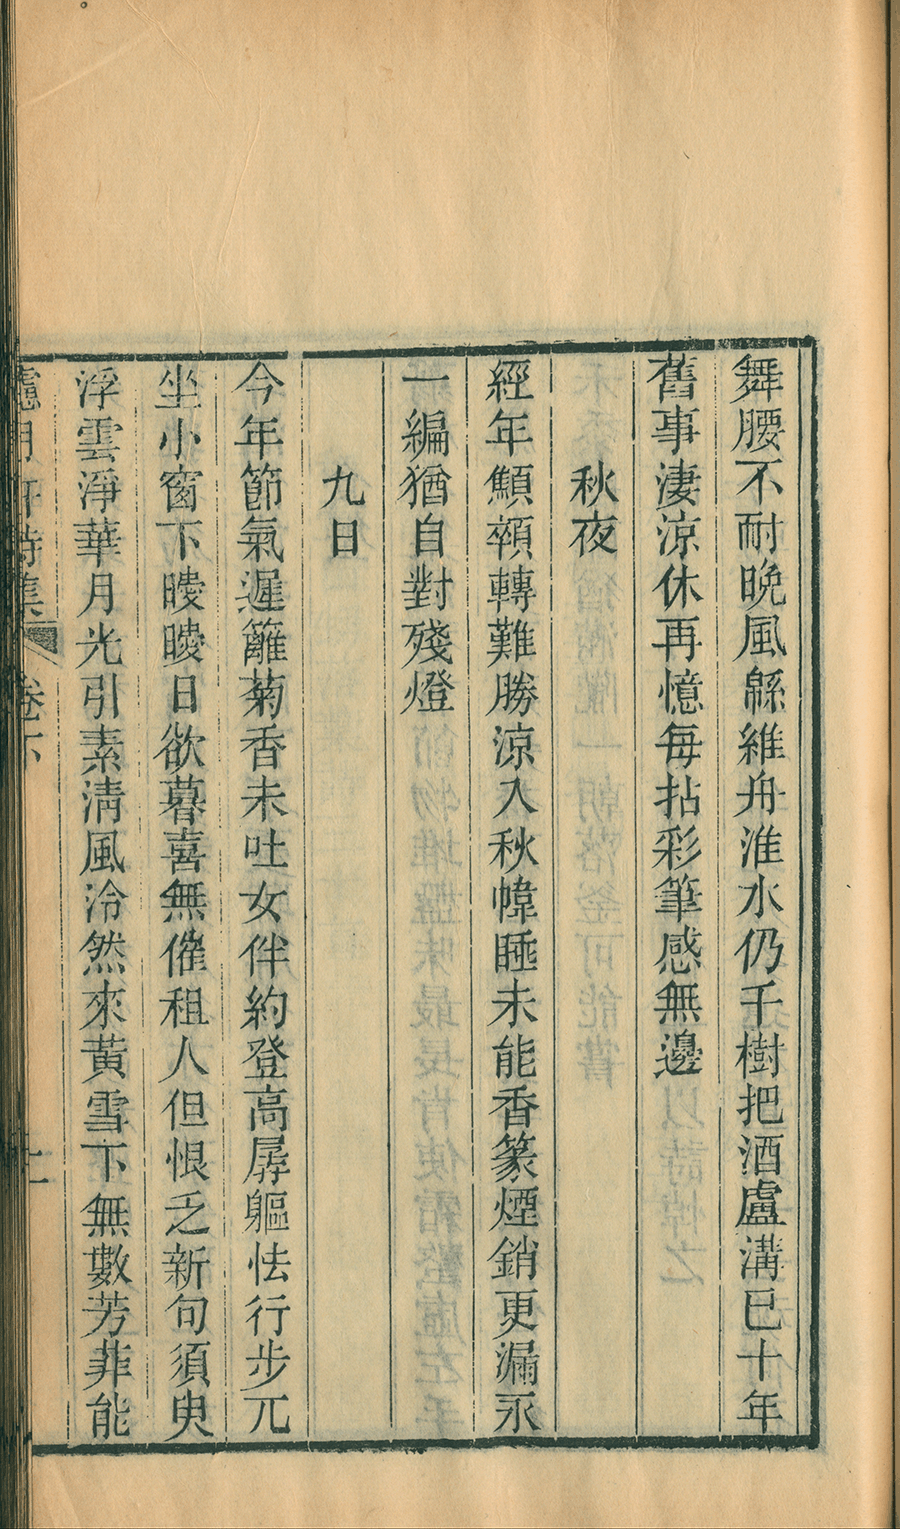 舞腰不耐晚風緜維舟淮水仍千樹把酒盧溝已十年
舊事淒涼休再憶每拈彩筆感無邊
秋夜
經年顦顇轉難勝涼入秋幃睡未能香篆煙銷更漏永
一編猶自對殘燈
九日
今年節氣遲籬菊香未吐女伴約登高孱軀怯行步兀
坐小窗下曖曖日欲暮喜無催租人但恨乏新句須臾
浮雲淨華月光引素清風泠然來黃雪下無數芳菲能
月軒詩集 卷下